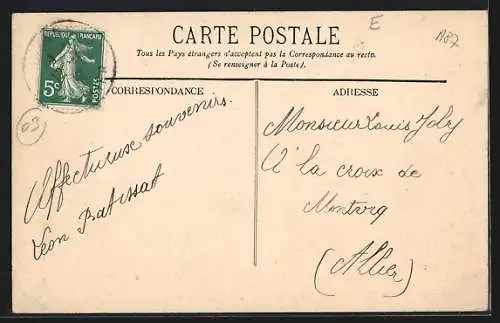 E
A87
CARTE POSTALE
Tous les Pays étrangers n'acceptent pas la Correspondance au recto.
(Se renseigner à la Poste).
REPUBLIQUE FRANÇAISE
5c POSTES
03
CORRESPONDANCE
Affectueux souvenirs.
Léon Batissat
ADRESSE
Monsieur Louis Joly
A la croix de
Montvicq
(Allier)